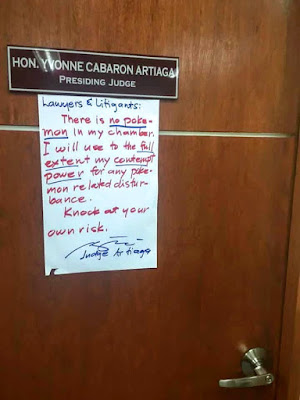 HON. YVONNE CABARON ARTIAGA
PRESIDING JUDGE
Lawyers & Litigants:
There is no poke-
mon in my chamber.
I will use to the full
extent my contempt
power for any poke-
mon related distur-
bance.
Knock at your
own risk.
Judge Artiaga